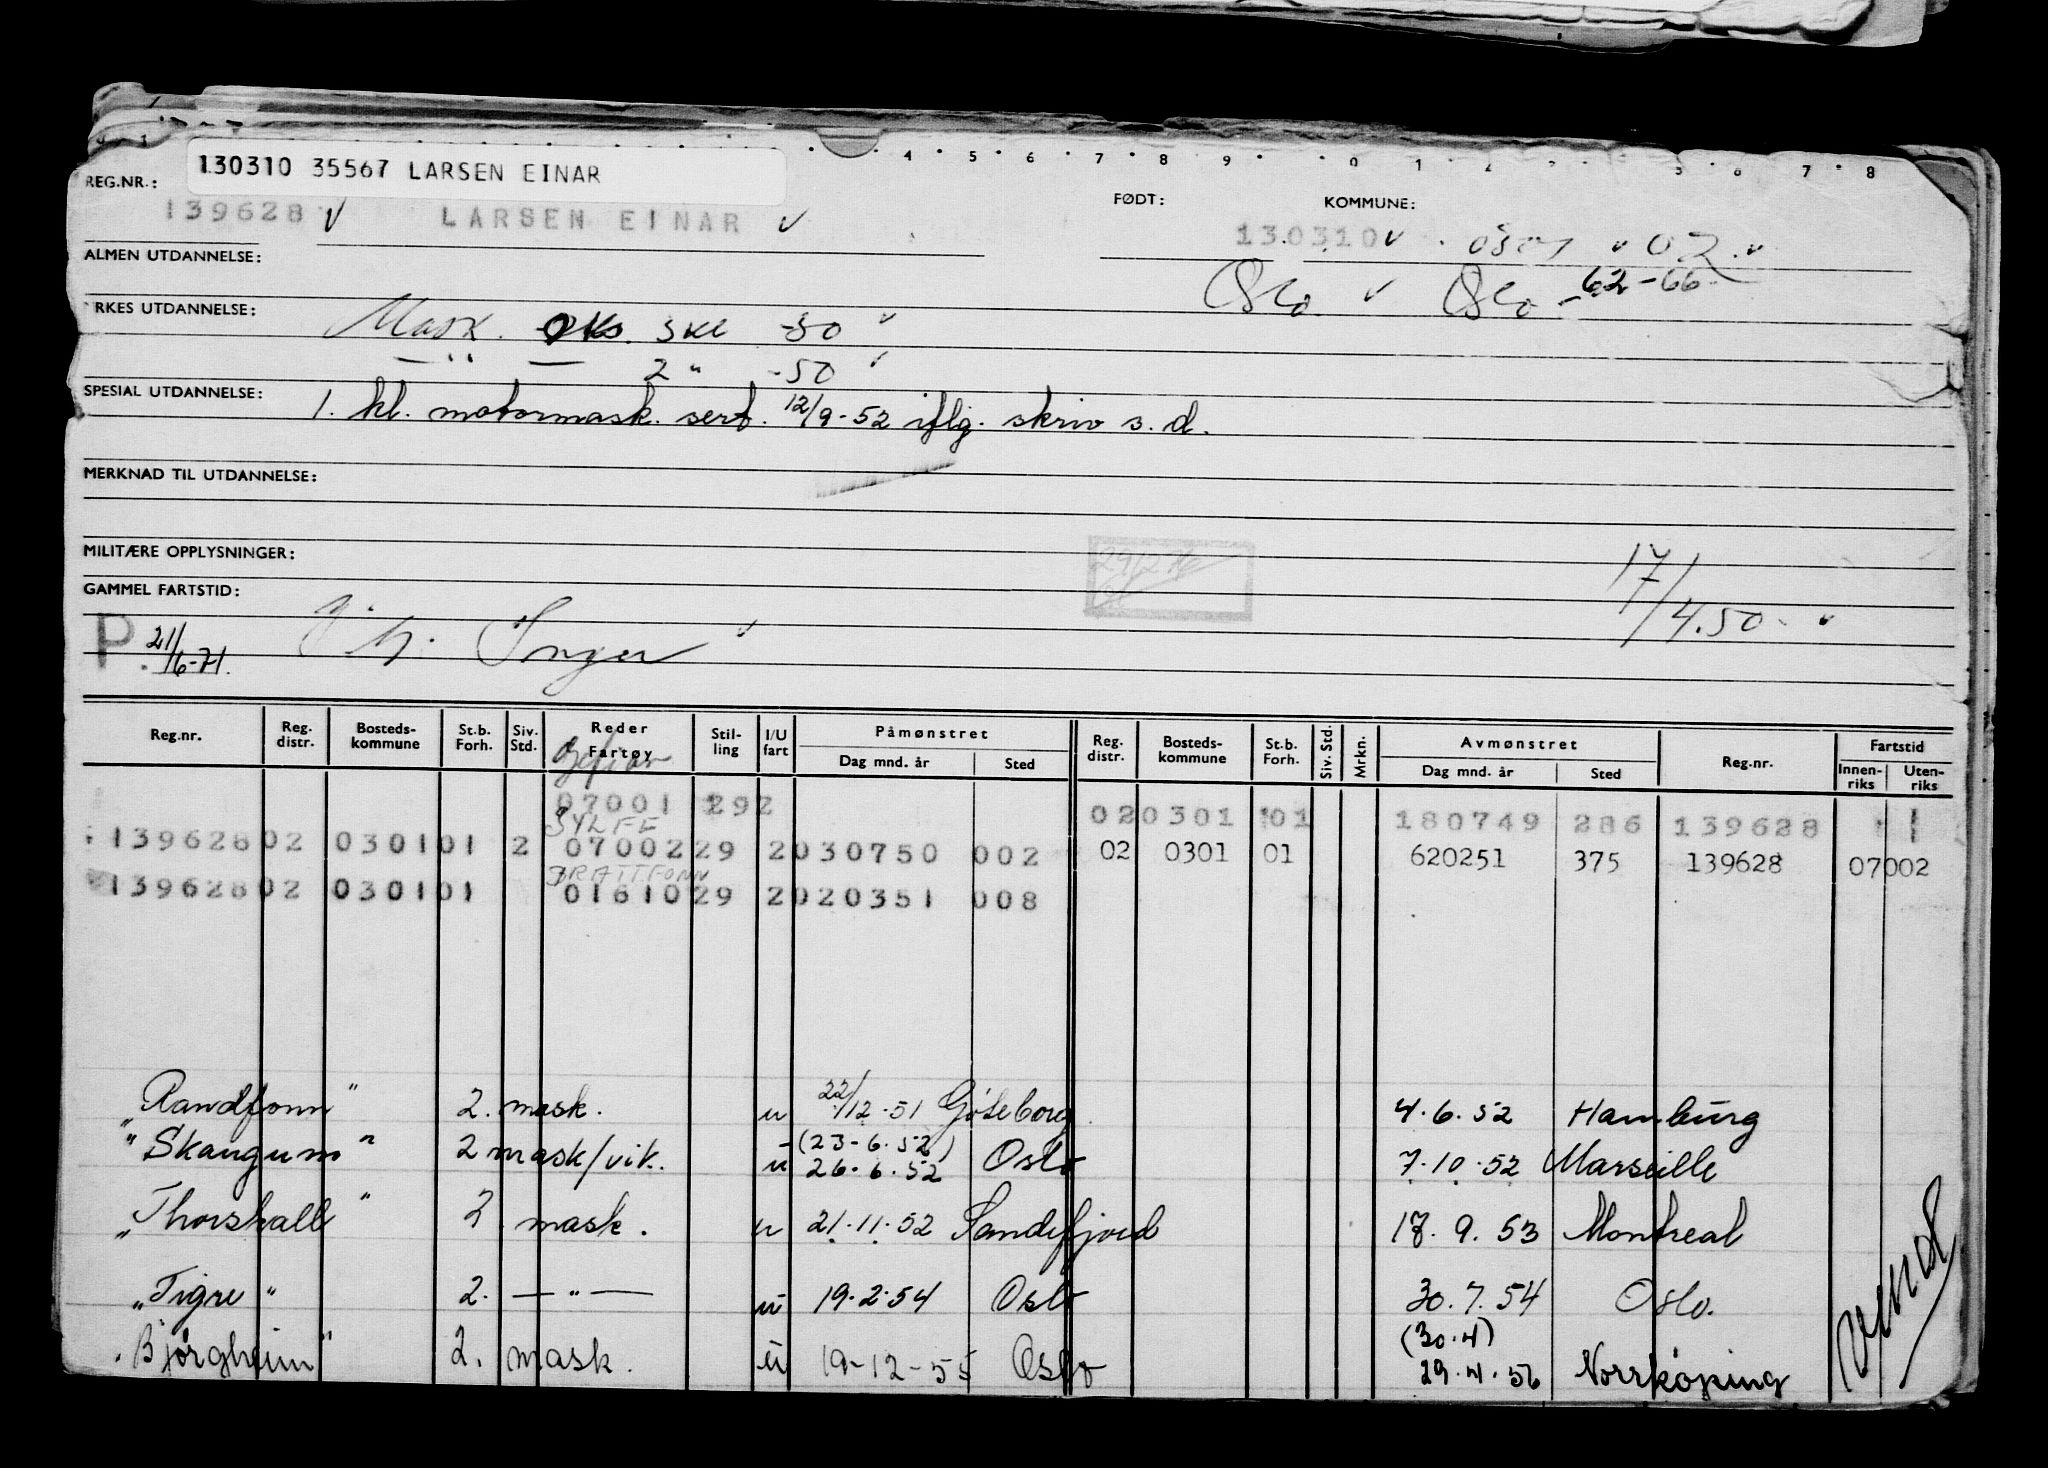 130310 35567 LARSEN EINAR
4 5 6 7 8 9 0 1 2 5 6 7 8
REG.NR.: FØDT: KOMMUNE:
139628 v LARSEN EINAR v 130310 v v 02 v
ALMEN UTDANNELSE:
Oslo v Oslo - 62-66
YRKES UTDANNELSE: Mask. eks. 3 kl -50 v
— " — 2 " -50 v
SPESIAL UTDANNELSE: 1. kl. motormask. sert. 12/9-52 iflg. skriv s.d.
MERKNAD TIL UTDANNELSE:
MILITÆRE OPPLYSNINGER: 29/2 76
17/4.50 v
GAMMEL FARTSTID:
P. 21/6-71. Inger v
Reg.nr. Reg. distr. Bosteds-kommune St.b. Forh. Siv. Std. Reder Fartøy Stil-ling I/U fart Påmønstret Dag mnd. år Sted Reg. distr. Bosteds-kommune St.b. Forh. Siv. Std. Mrkn. Avmønstret Dag mnd. år Sted Reg.nr. Fartstid Innen-riks Uten-riks
Gefion
07001 292 02 0301 01 180749 286 139628
SYLFE
139628 02 0301 01 2 07002 29 2 030750 002 02 0301 01 620251 375 139628 07002
BRATTFONN
139628 02 0301 01 01610 29 2 020351 008
"Randfonn" 2. mask. u 22/12.51 Göteborg 4.6.52 Hamburg
"Skaugum" 2 mask/vik. u (23-6.52) 26.6.52 Oslo 7.10.52 Marseille
"Thorshall" 2 mask. u 21.11.52 Sandefjord 18.9.53 Montreal
"Tigre" 2. — " — u 19.2.54 Oslo 30.7.54 Oslo.
(30.4)
"Bjørgheim" 2. mask. u 19-12-55 Oslo 29.4.56 Norrköping
Vend